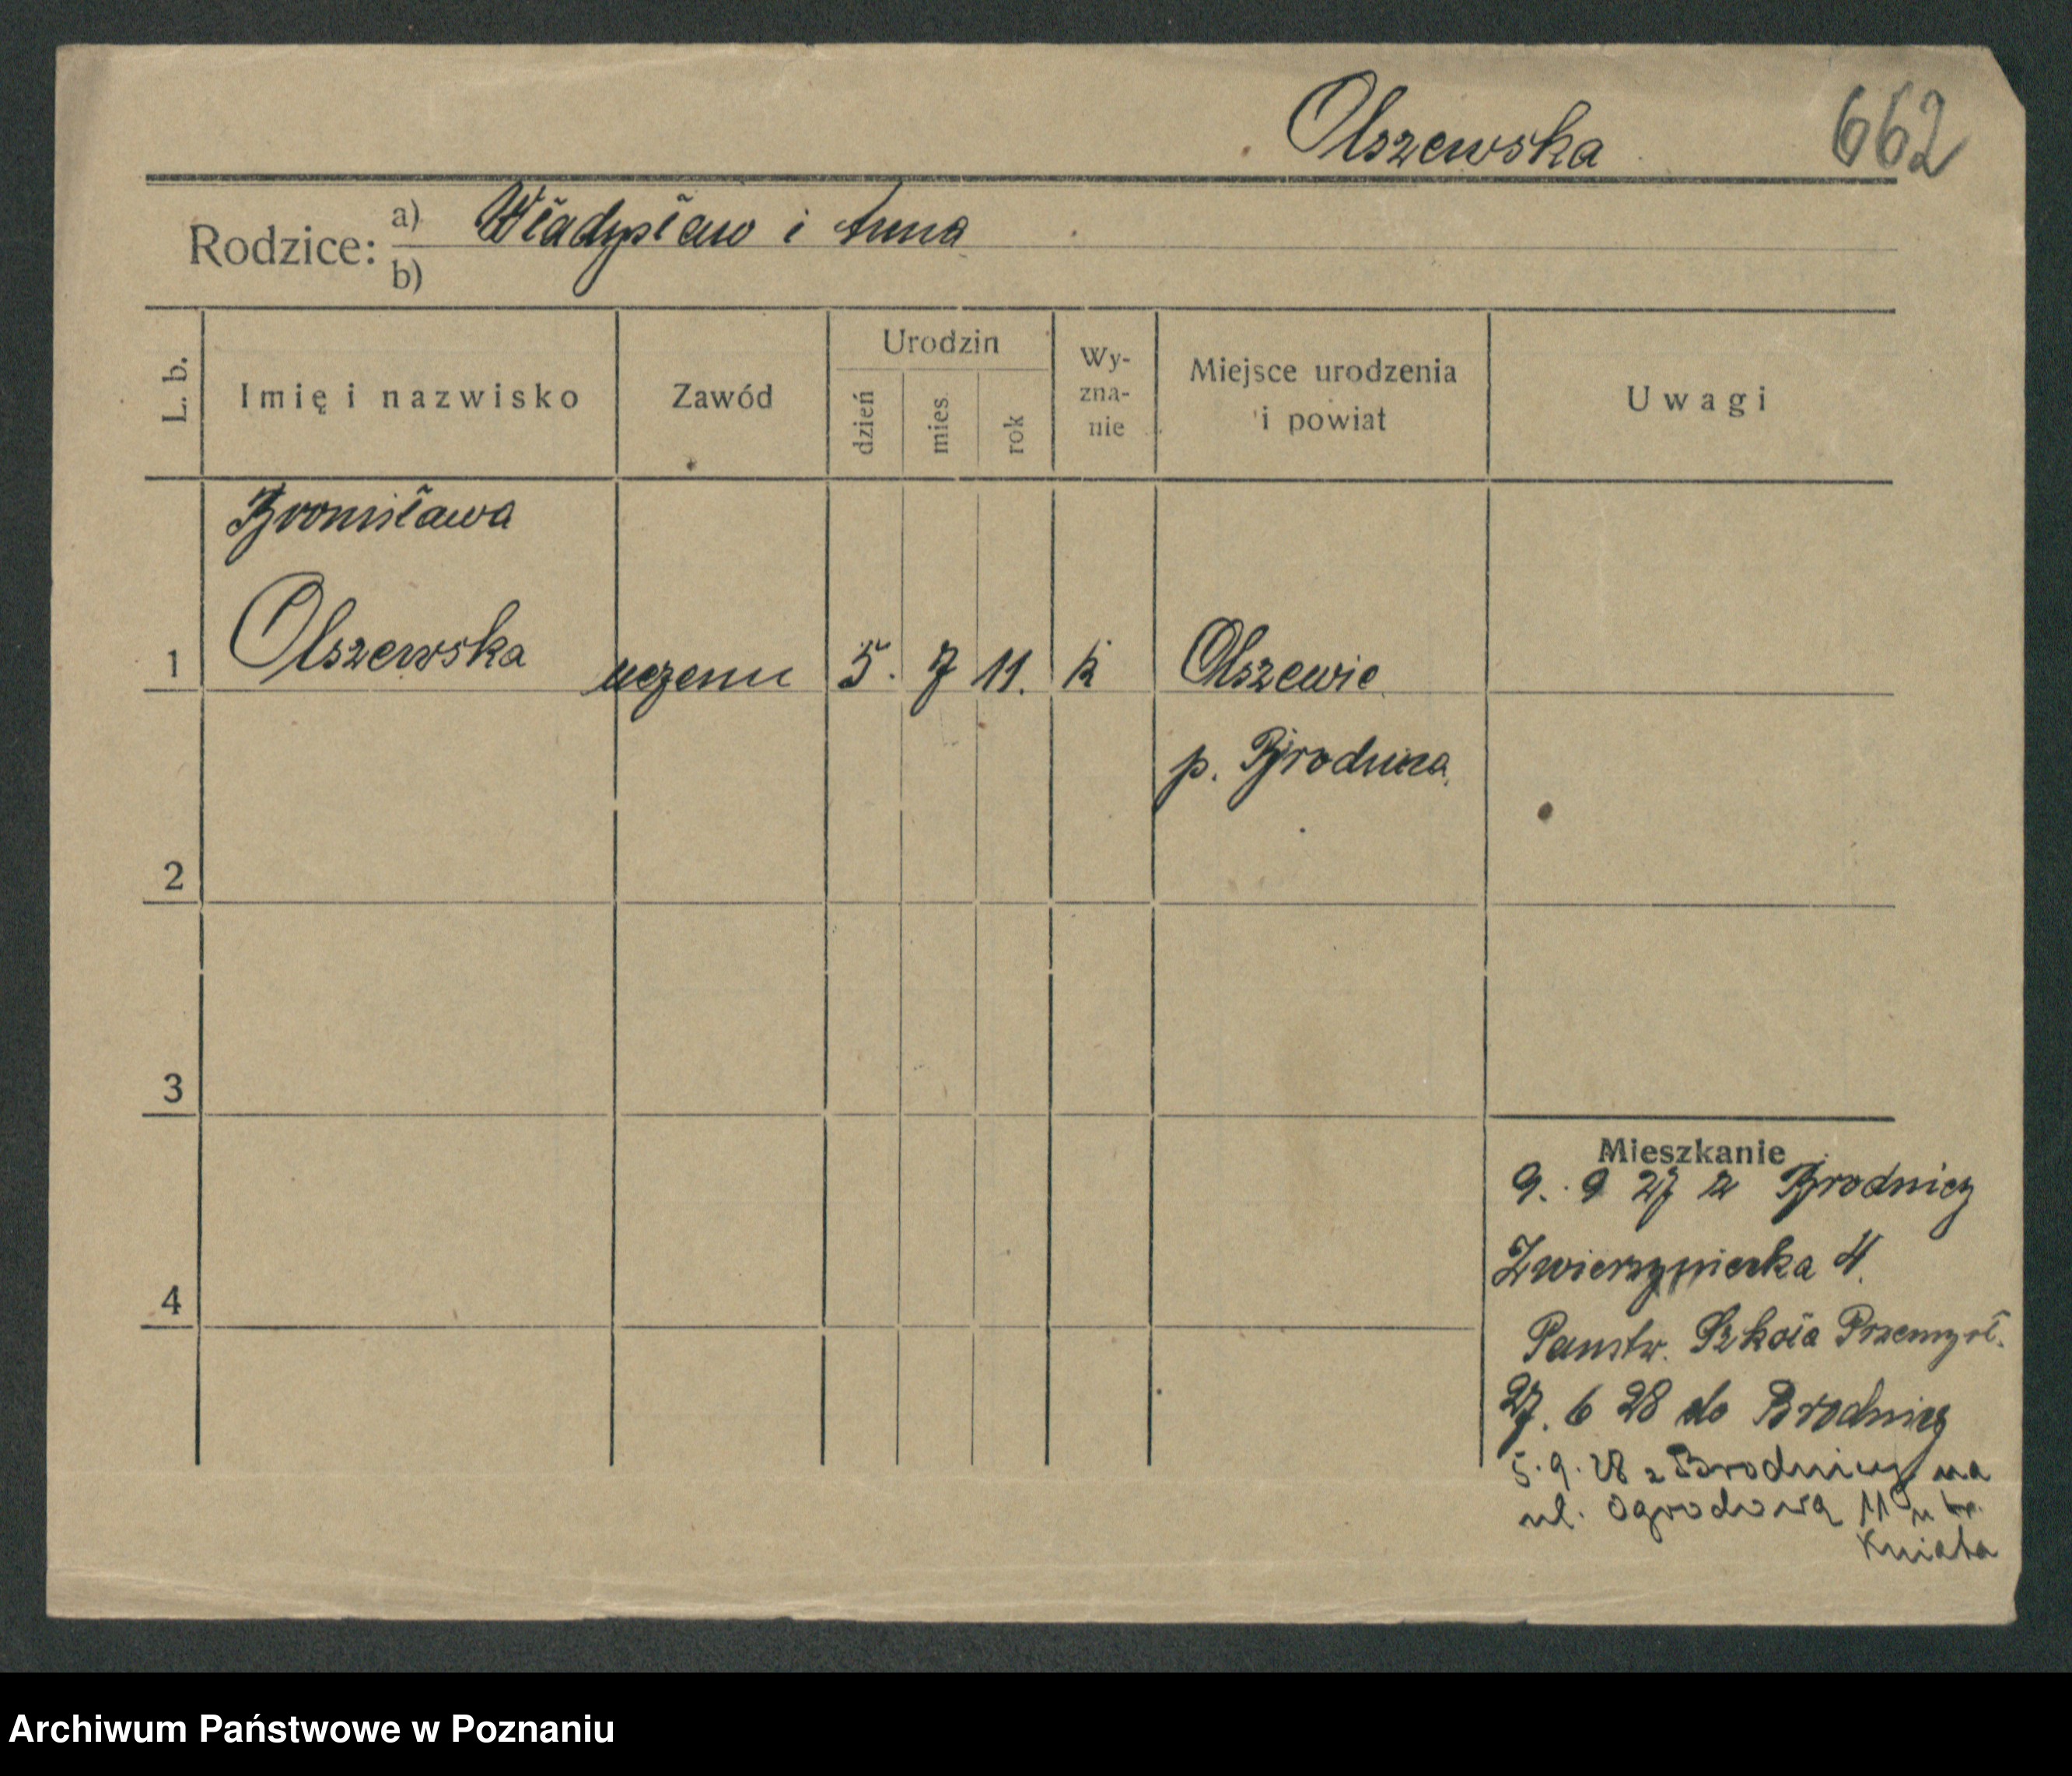 Olszewska
662
Rodzice: a) Władysław i Anna
b)
L. b.
Imię i nazwisko
Zawód
Urodzin
dzień
mies.
rok
Wy-
zna-
nie
Miejsce urodzenia
i powiat
Uwagi
Bronisława
1 Olszewska uczenn 5. 7 11. k Olszewie
p. Brodnica
2
3
4
Mieszkanie
9. 9 27 z Brodnicy
Zwierzyniecka 4.
Panstw. Szkoła Przemysł.
27. 6 28 do Brodnicy
5.9.28 z Brodnicy na
ul. Ogrodową 11 u
Kniata
Archiwum Państwowe w Poznaniu